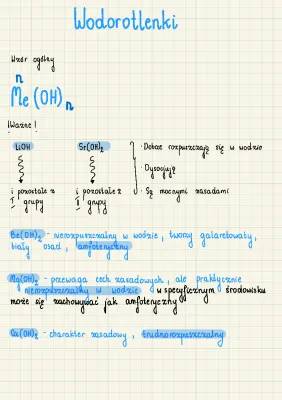 Wodorotlenki
Wzór ogólny
n
Me(OH)n
!Ważne!
LiOH
Sr(OH)2
· Dobrze rozpuszczają się w wodzie
· Dysocjują
· Są mocnymi zasadami
i pozostałe z
I grupy
i pozostałe z
II grupy
Be(OH)2 - nierozpuszczalny w wodzie, tworzy galaretowaty,
biały osad, amfoteryczny
Mg(OH)2 - przewaga cech zasadowych, ale praktycznie
nierozpuszczalny w wodzie w specyficznym środowisku
może się zachowywać jak amfoteryczny
Ca(OH)2 - charakter zasadowy, trudnorozpuszczalny